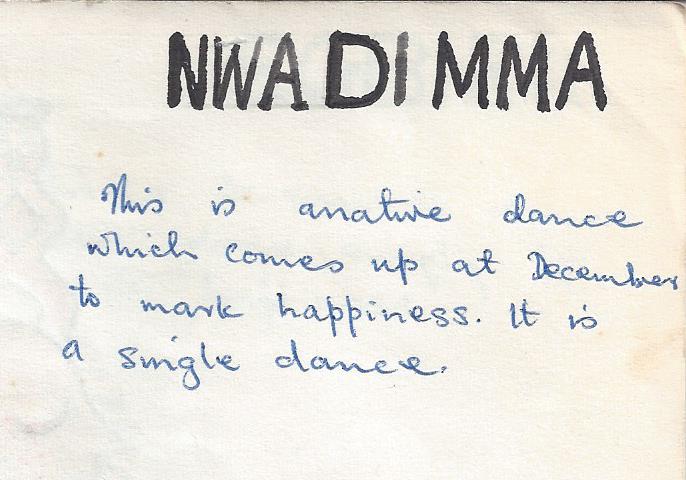 NWADIMMA
This is anative dance
which comes up at December
to mark happiness. It is
a single dance.